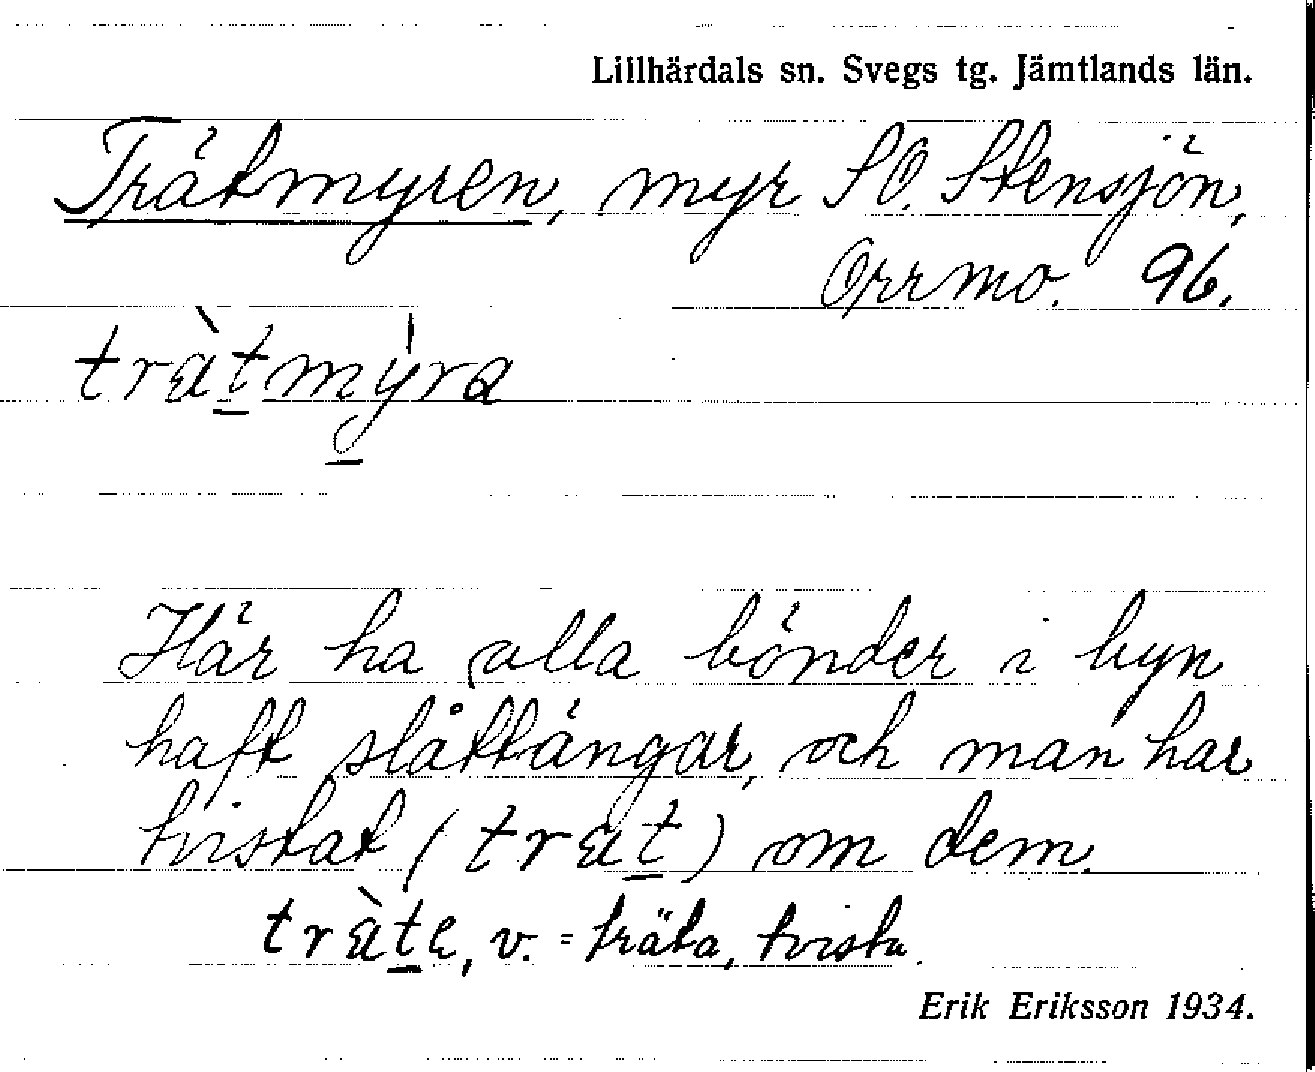 Lillhärdals sn. Svegs tg. Jämtlands län.
Trätmyren, myr SO. Stensjön,
Orrmo. 96.
trà̀tmỳra
Här ha alla bönder i byn
haft slåttängar, och man har
tvistat (trat) om dem.
tràte, v. = träta, tvista.
Erik Eriksson 1934.